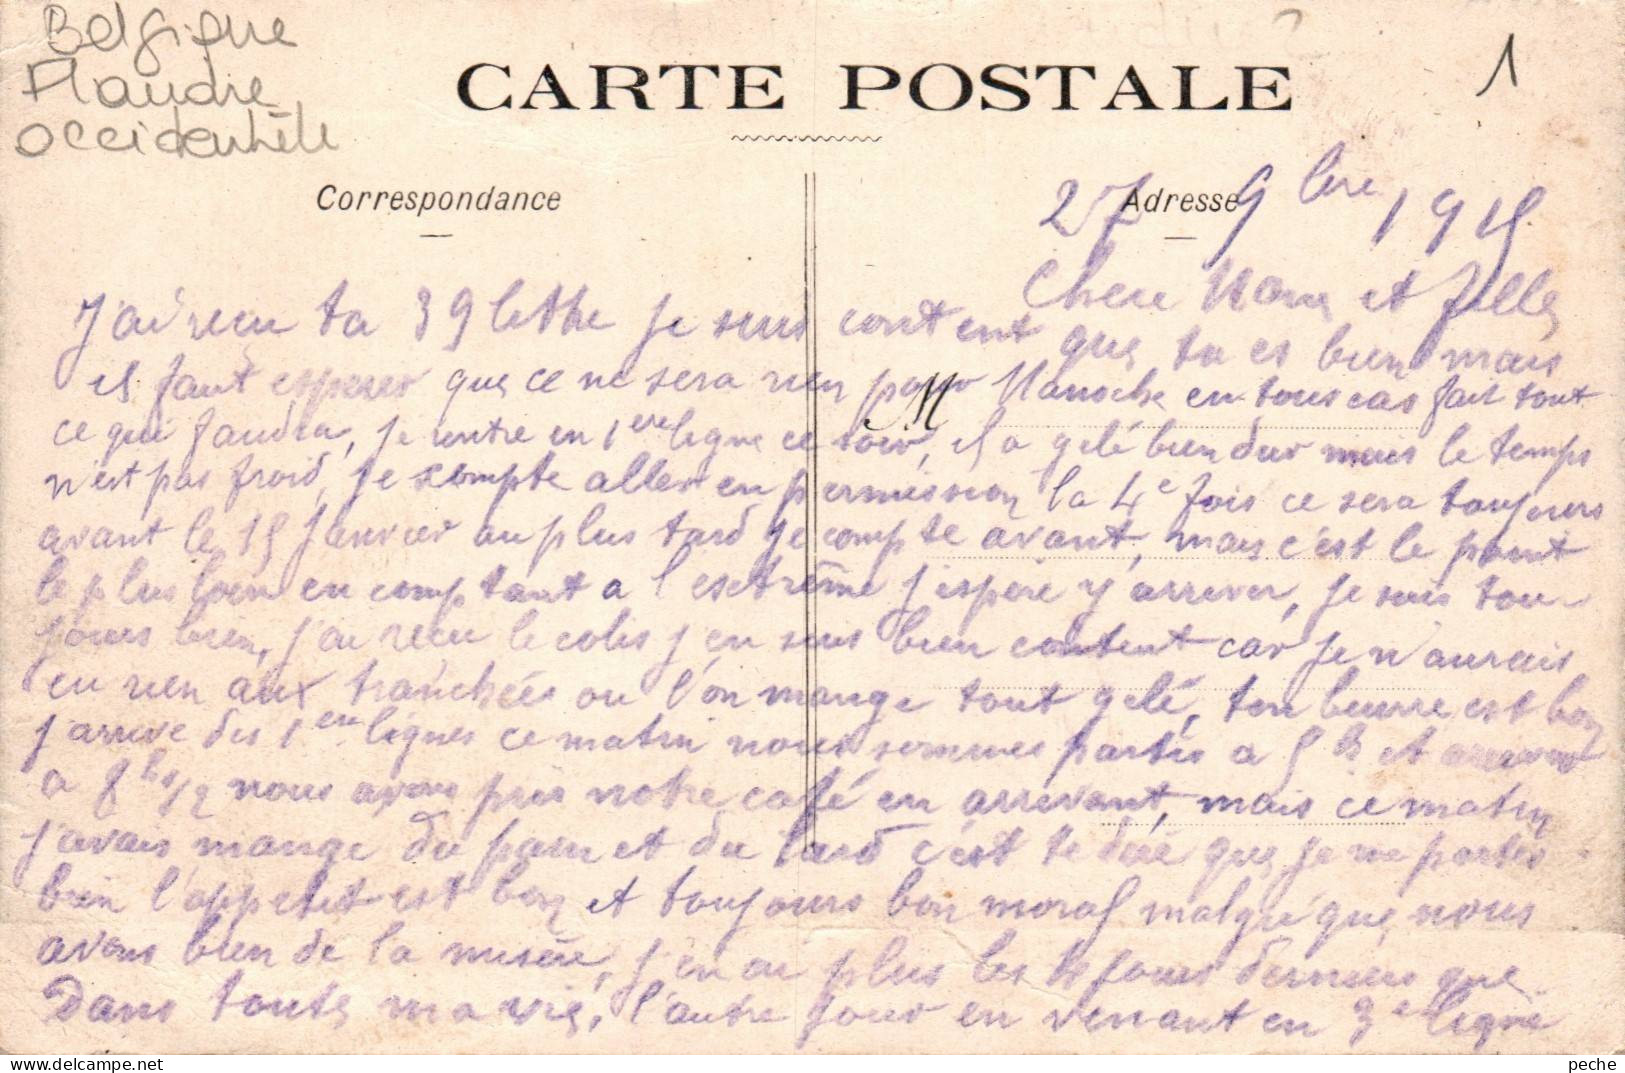 Belgique
Flandre
Occidentale
1
CARTE POSTALE
Correspondance
Adresse
27 9bre 1915
Chere et fille
J'ai recu ta 39 lettre je suis content que tu es bien mais
il faut esperer que ce ne sera rien pour Manoche en tous cas fait tout
M
ce qui faudra, je rentre en 1ere ligne ce soir, il a gelé bien dur mais le temps
n'est pas froid, je compte aller en permission la 4e fois ce sera toujours
avant le 15 Janvier au plus tard je compte avant, mais c'est le point
le plus loin en comptant a l'esctrême j'espere y arriver, je suis tou-
jours bien, j'ai recu le colis j'en suis bien content car je n'aurais
eu rien aux tranchées ou l'on mange tout gelé, ton beurre est bon
j'arrive des 1ere lignes ce matin nous sommes partis a 5 hs et arrivent
a 8 hs 1/2 nous avons pris notre café en arrivant, mais ce matin
j'avais mange du pain et du lard c'est te dire que je me portes
bien l'appetit est bon et toujours bon moral malgré que nous
avons bien de la misere, j'en ai plus les 4 jours derniers que
Dans toute ma vie, l'autre jour en venant en 3e ligne
peche